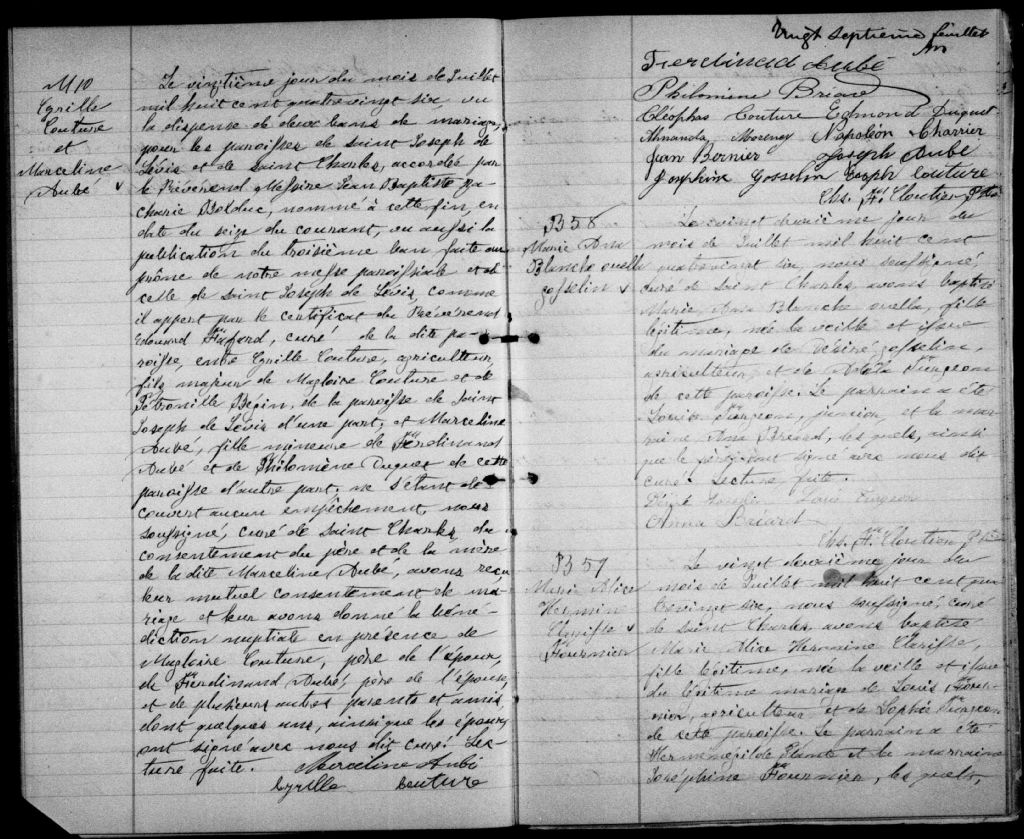 M 10
Cyrille
Couture
et
Marceline
Aubé
Le vingtième jour du mois de Juillet
mil huit cent quatrevingt six, vu
la dispense de deux bans de mariage,
pour les paroisses de Saint Joseph de
Lévis et de Saint Charles, accordée par
le Révérend Messire Jean Baptiste Za-
charie Bolduc, nommé à cette fin, en
date du seize du courant, vu aussi la
publication du troisième ban faite au
prône de notre messe paroissiale et de
celle de Saint Joseph de Lévis, comme
il appert par le certificat du Révérend
Edouard Fafard, curé de la dite pa-
roisse, entre Cyrille Couture, agriculteur,
fils majeur de Magloire Couture et de
Pétronille Bégin, de la paroisse de Saint
Joseph de Lévis d'une part, et Marceline
Aubé, fille mineure de Ferdinand
Aubé et de Philomène Duquet de cette
paroisse d'autre part, ne s'étant dé-
couvert aucun empêchement, nous
soussigné, curé de Saint Charles, du
consentement du père et de la mère
de la dite Marceline Aubé, avons reçu
leur mutuel consentement de ma-
riage et leur avons donné la béné-
diction nuptiale en présence de
Magloire Couture, père de l'époux,
de Ferdinand Aubé, père de l'épouse,
et de plusieurs autres parents et amis,
dont quelques uns, ainsi que les époux,
ont signé avec nous dit curé. Lec-
ture faite. Marceline Aubé
Cyrille Couture
Vingt septieme feuillet
Ferdinad Aubé
Philomine
Cléophas Couture Edmond Duquet
Ahmanda Morency Napoléon Charrier
Jean Bernier Joseph Aubé
Josephine Gosselin Joseph Couture
Chs. A. Cloutier Ptre
B 58
Marie Ana
Blanche ouella
gosselin
Le vingt deuxième jour du
mois de Juillet mil huit cent
quatrevingt six, nous soussigné,
curé de Saint Charles, avons baptisé
Marie Ana Blanche ouella, fille
légitime, née la veille et issue
du mariage de Désiré gosselin,
agriculteur, et de Turgeon
de cette paroisse. Le parrain a été
Louis Turgeon, junior, et la mar-
raine Ana Bréard, lesquels, ainsi
que le père, ont signé avec nous dit
curé. Lecture faite.
Louis Turgeon
Anna Bréard
Chs. A. Cloutier Ptre
B 59
Marie Alice
Hermine
Clarisse
Fournier
Le vingt deuxième jour du
mois de Juillet mil huit cent qua
trevingt six, nous soussigné, curé
de Saint Charles, avons baptisé
Marie Alice Hermine Clarisse,
fille légitime, née la veille et issue
du légitime mariage de Louis Four-
nier, agriculteur et de Sophie Turgeon
de cette paroisse. Le parrain a été
Herménégilde Plante et la marraine
Joséphine Fournier, lesquels,